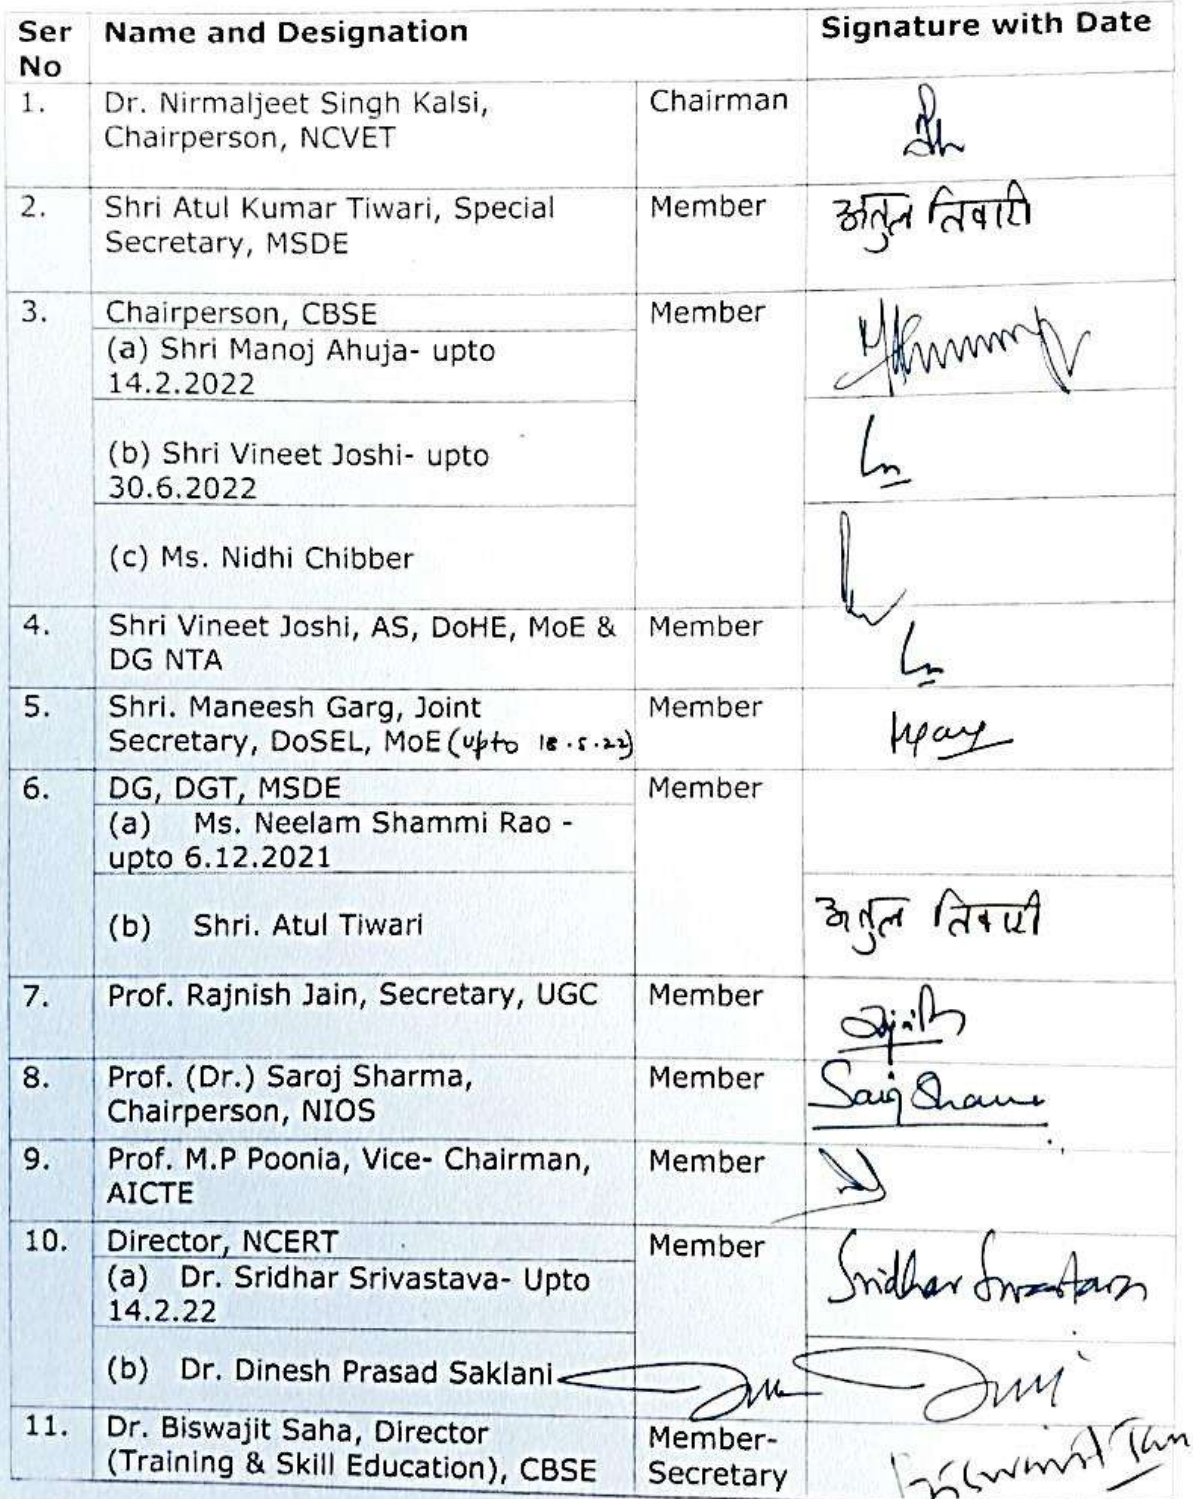 Ser No
Name and Designation
Signature with Date
1.
Dr. Nirmaljeet Singh Kalsi,
Chairperson, NCVET
Chairman
2.
Shri Atul Kumar Tiwari, Special
Secretary, MSDE
Member
अतुल तिवारी
3.
Chairperson, CBSE
Member
(a) Shri Manoj Ahuja- upto
14.2.2022
(b) Shri Vineet Joshi- upto
30.6.2022
(c) Ms. Nidhi Chibber
4.
Shri Vineet Joshi, AS, DoHE, MoE &
DG NTA
Member
5.
Shri. Maneesh Garg, Joint
Secretary, DoSEL, MoE (upto 18.5.22)
Member
6.
DG, DGT, MSDE
Member
(a) Ms. Neelam Shammi Rao -
upto 6.12.2021
(b) Shri. Atul Tiwari
अतुल तिवारी
7.
Prof. Rajnish Jain, Secretary, UGC
Member
8.
Prof. (Dr.) Saroj Sharma,
Chairperson, NIOS
Member
9.
Prof. M.P Poonia, Vice- Chairman,
AICTE
Member
10.
Director, NCERT
Member
(a) Dr. Sridhar Srivastava- Upto
14.2.22
Sridhar Srivastava
(b) Dr. Dinesh Prasad Saklani
11.
Dr. Biswajit Saha, Director
(Training & Skill Education), CBSE
Member-
Secretary